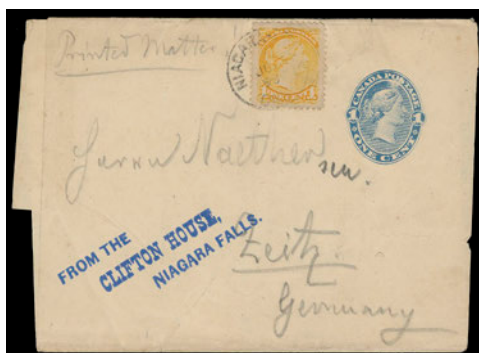 Printed Matter
NIAGAR
CANADA POSTAGE
1 1
ONE CENT
Herrn Naether
sen.
FROM THE
CLIFTON HOUSE,
NIAGARA FALLS.
Zeitz.
Germany